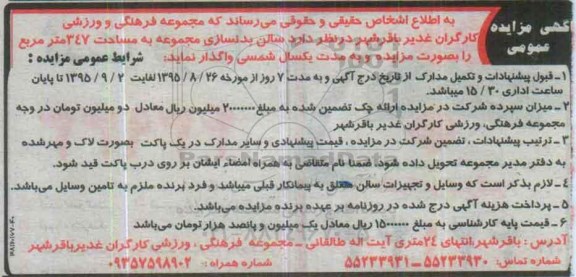 آگهی مزایده
عمومی
به اطلاع اشخاص حقیقی و حقوقی می‌رساند که مجموعه فرهنگی و ورزشی
کارگران غدیر باقرشهر در نظر دارد سالن بدنسازی مجموعه به مساحت ۳۴۷ متر مربع
را بصورت مزایده و به مدت یکسال شمسی واگذار نماید: شرایط عمومی مزایده :
۱ـ قبول پیشنهادات و تکمیل مدارک از تاریخ درج آگهی و به مدت ۷ روز از مورخه ۲۶ / ۸ / ۱۳۹۵ لغایت ۲ / ۹ / ۱۳۹۵ تا پایان
ساعت اداری ۳۰ / ۱۵ میباشد.
۲ـ میزان سپرده شرکت در مزایده ارائه چک تضمین شده به مبلغ ۲۰۰۰۰۰۰۰ میلیون ریال معادل دو میلیون تومان در وجه
مجموعه فرهنگی، ورزشی کارگران غدیر باقرشهر
۳ـ ترتیب پیشنهادات ، تضمین شرکت در مزایده ، قیمت پیشنهادی و سایر مدارک در یک پاکت بصورت لاک و مهر شده
به دفتر مدیر مجموعه تحویل داده شود. ضمنا نام متقاضی به همراه امضاء ایشان بر روی درب پاکت قید شود.
۴ـ لازم بذکر است که وسایل و تجهیزات سالن متعلق به پیمانکار قبلی میباشد و فرد برنده ملزم به تامین وسایل می‌باشد.
۵ـ پرداخت هزینه آگهی درج شده در روزنامه بر عهده برنده مزایده می‌باشد.
۶ـ قیمت پایه کارشناسی به مبلغ ۱۵۰۰۰۰۰۰ ریال معادل یک میلیون و پانصد هزار تومان می‌باشد
آدرس : باقرشهر، انتهای ۲۴ متری آیت اله طالقانی ـ مجموعه فرهنگی ، ورزشی کارگران غدیر باقرشهر
شماره تماس: ۵۵۲۳۳۹۳۰ ـ ۵۵۲۳۳۹۳۱ شماره همراه : ۰۹۳۵۷۵۹۸۹۰۲